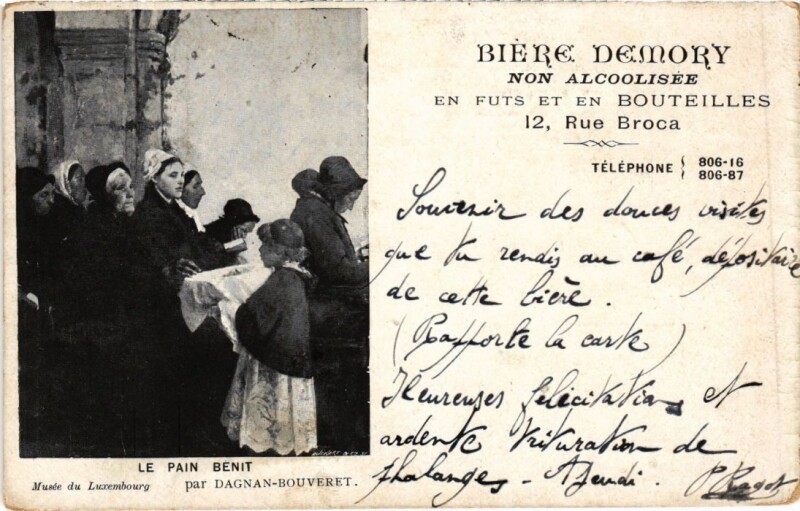 BIÈRE DEMORY
NON ALCOOLISÉE
EN FUTS ET EN BOUTEILLES
12, Rue Broca
TÉLÉPHONE { 806-16
806-87
Souvenir des douces visites
que tu rendis au café, dépositaire
de cette bière.
(Rapporte la carte)
Heureuses félicitations et
ardente trituration de
phalanges - A Jeudi. P Ragot
LE PAIN BENIT
Musée du Luxembourg par DAGNAN-BOUVERET.